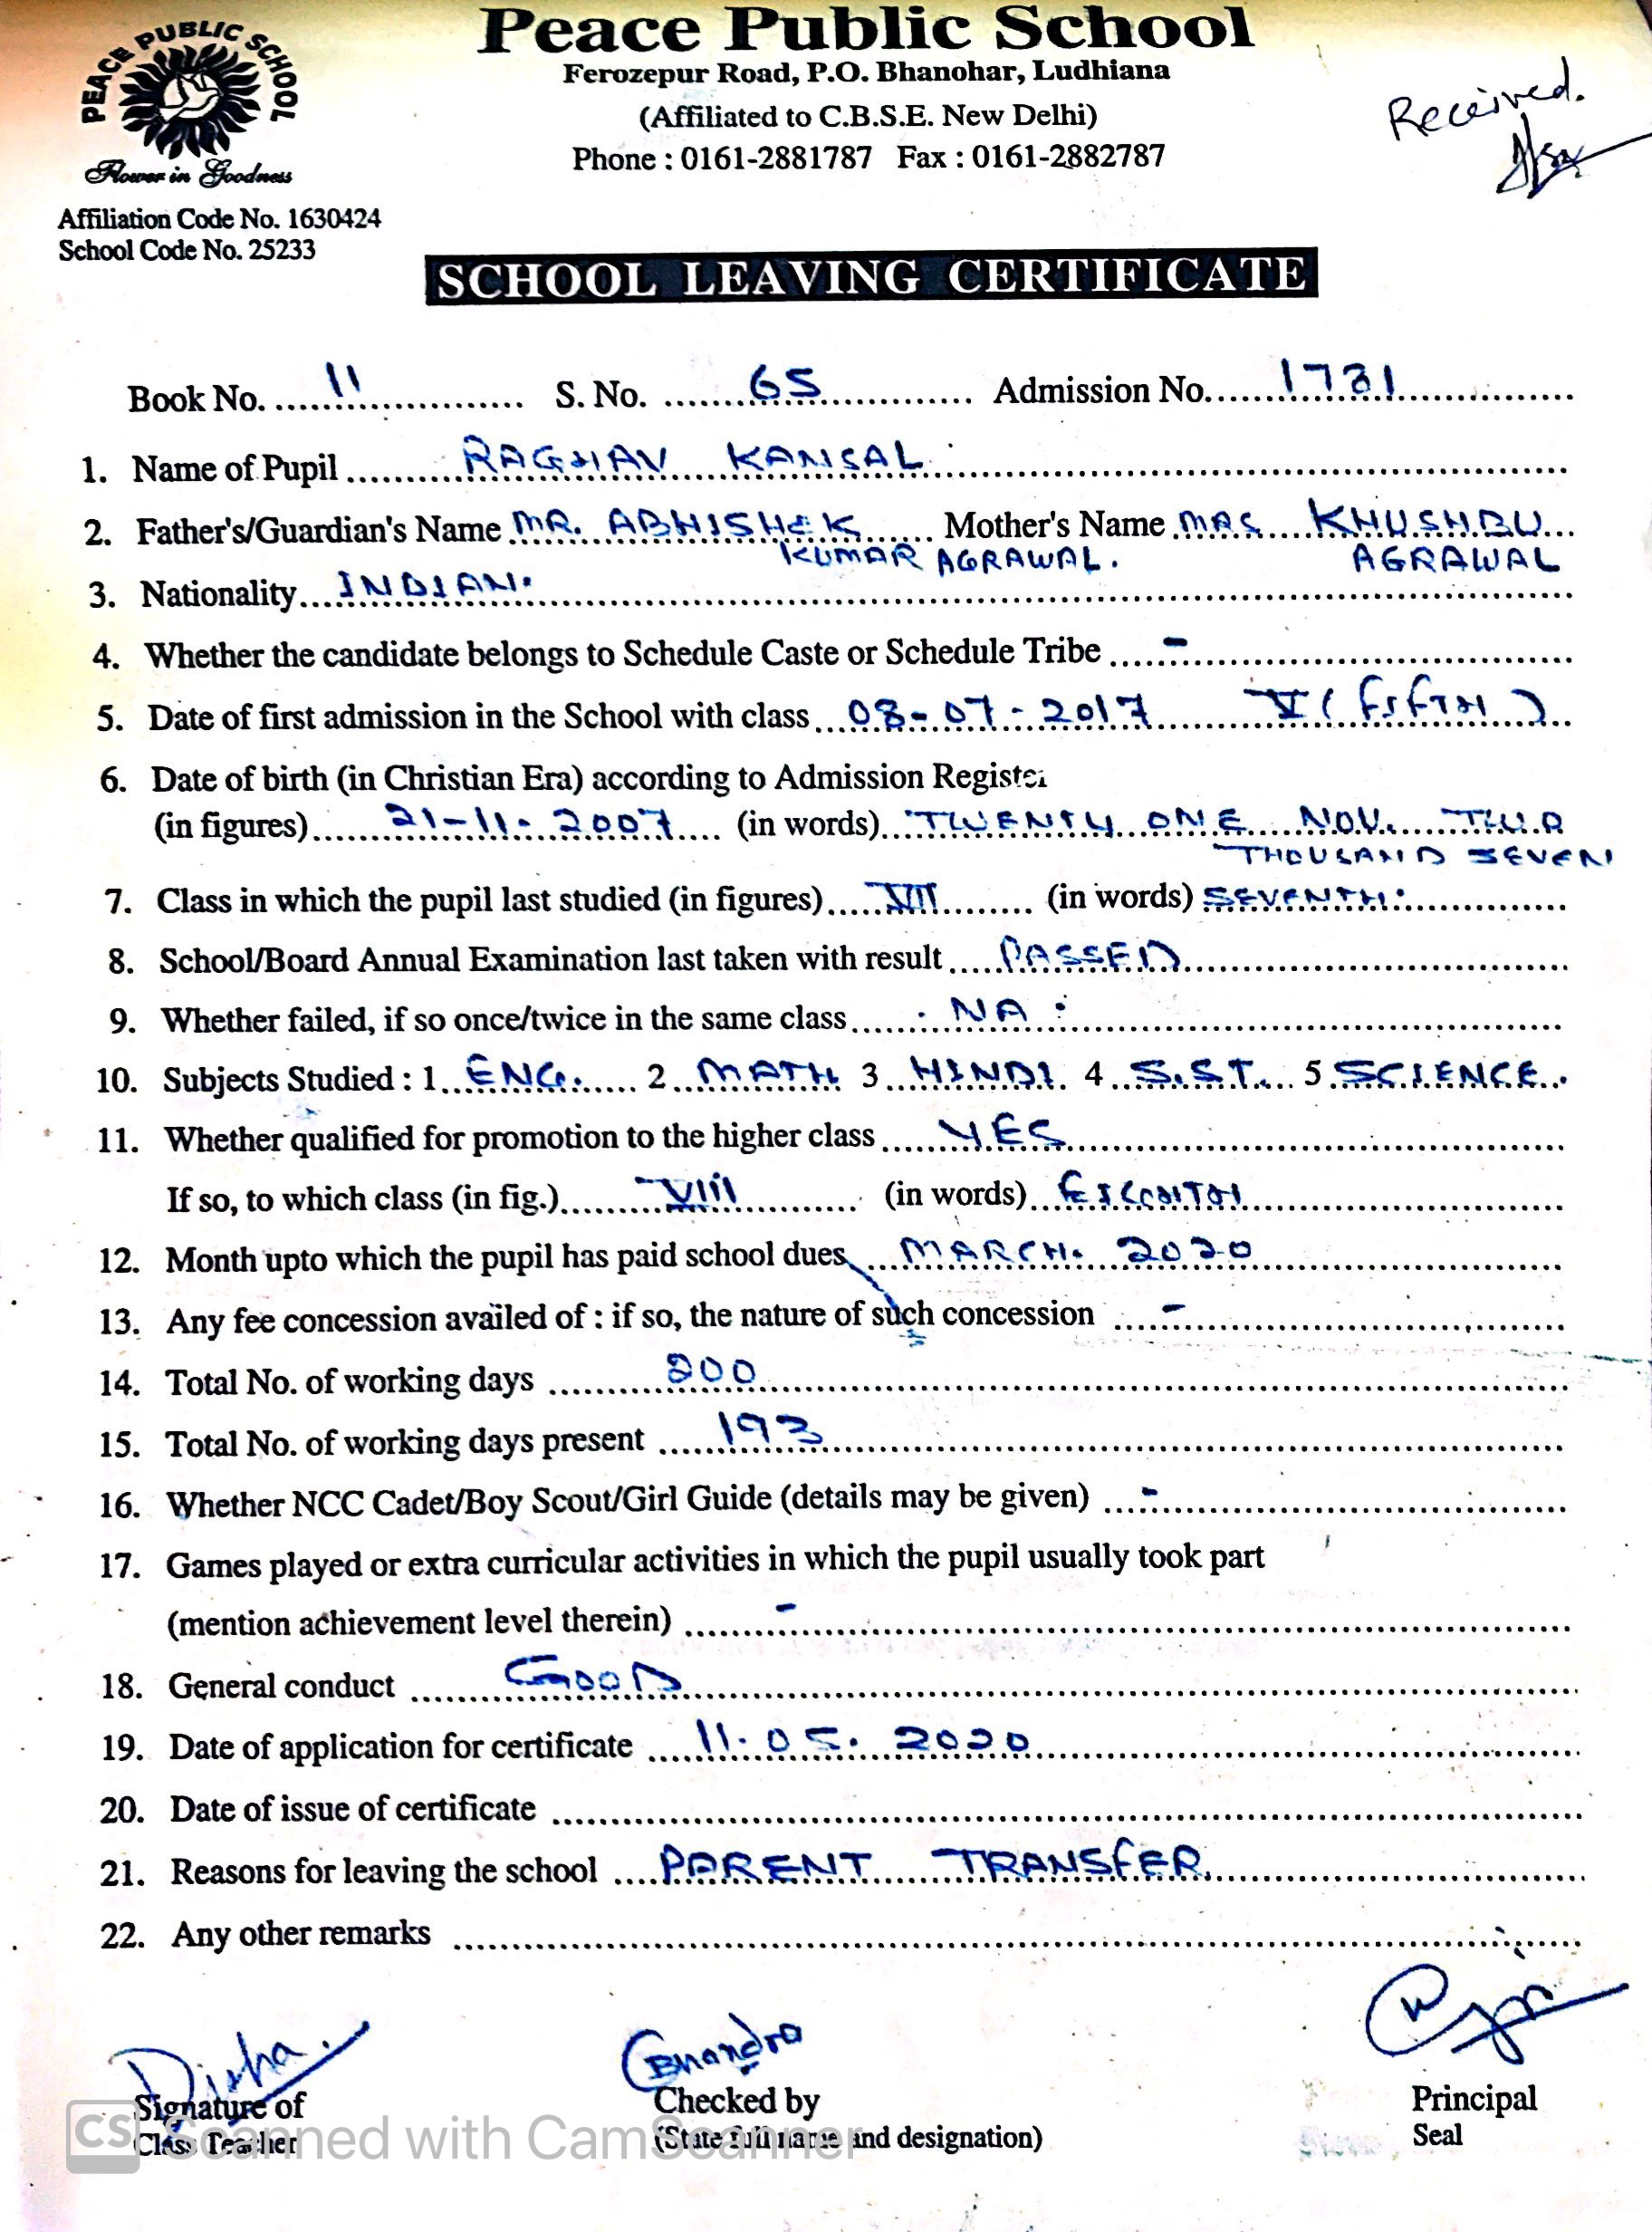 PEACE PUBLIC SCHOOL
Flower in Goodness
Peace Public School
Ferozepur Road, P.O. Bhanohar, Ludhiana
(Affiliated to C.B.S.E. New Delhi)
Phone : 0161-2881787 Fax : 0161-2882787
Received.
Affiliation Code No. 1630424
School Code No. 25233
SCHOOL LEAVING CERTIFICATE
Book No. 11 S. No. 65 Admission No. 1731
1. Name of Pupil RAGHAV KANSAL
2. Father's/Guardian's Name MR. ABHISHEK Mother's Name MRS KHUSHBU
KUMAR AGRAWAL. AGRAWAL
3. Nationality INDIAN.
4. Whether the candidate belongs to Schedule Caste or Schedule Tribe -
5. Date of first admission in the School with class 03-07-2017 V (FIFTH)
6. Date of birth (in Christian Era) according to Admission Register
(in figures) 21-11-2007 (in words) TWENTY ONE NOV. TWO
THOUSAND SEVEN
7. Class in which the pupil last studied (in figures) VII (in words) SEVENTH.
8. School/Board Annual Examination last taken with result PASSED
9. Whether failed, if so once/twice in the same class NA
10. Subjects Studied : 1 ENG. 2 MATH 3 HINDI. 4 S.S.T. 5 SCIENCE.
11. Whether qualified for promotion to the higher class YES
If so, to which class (in fig.) VIII (in words) EIGHTH
12. Month upto which the pupil has paid school dues MARCH. 2020
13. Any fee concession availed of : if so, the nature of such concession -
14. Total No. of working days 200
15. Total No. of working days present 193
16. Whether NCC Cadet/Boy Scout/Girl Guide (details may be given) -
17. Games played or extra curricular activities in which the pupil usually took part
(mention achievement level therein) -
18. General conduct GOOD
19. Date of application for certificate 11.05.2020
20. Date of issue of certificate
21. Reasons for leaving the school PARENT TRANSFER.
22. Any other remarks
Disha
Signature of Checked by Principal
Class Teacher (State full name and designation) Seal
CS Scanned with CamScanner